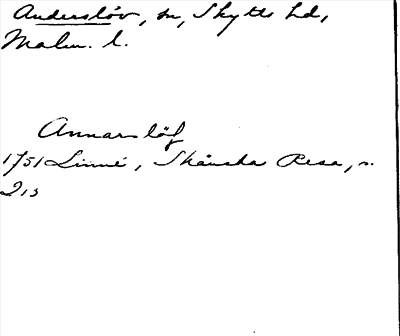 Anderslöv, sn, Skytts hd,
Malm. l.
Annarslöf
1751 Linné, Skånska Resa, s.
213